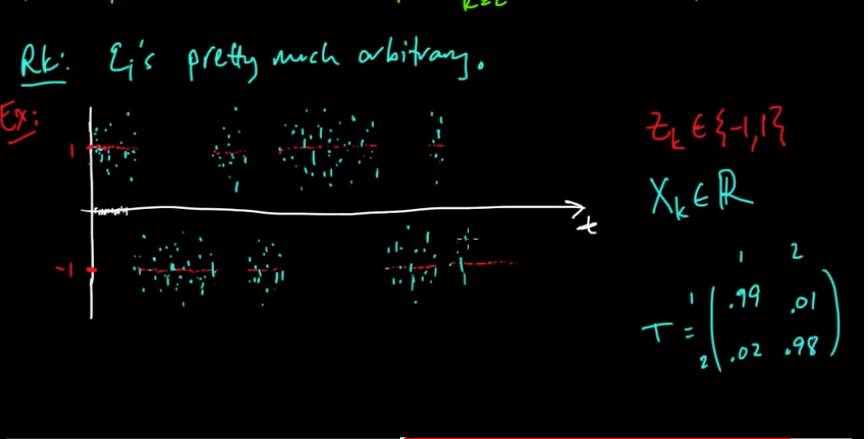 k=2
Rk: εi's pretty much arbitrary.
Ex:
1
-1
t
Zk ∈ {-1,1}
Xk ∈ ℝ
1 2
T = 1 ( .99 .01
2 .02 .98 )